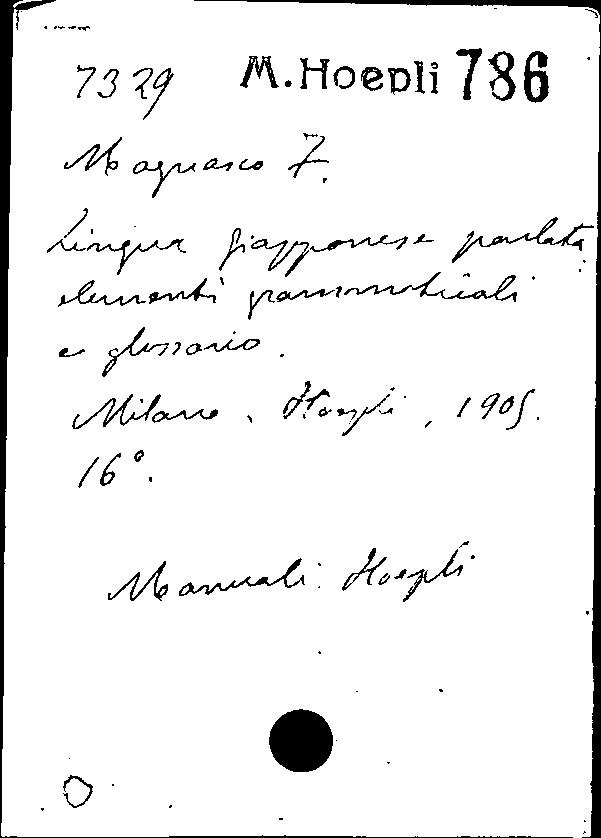 7329 M.Hoepli 786
Magnasco F.
Lingua giapponese parlata:
elementi grammaticali
e glossario.
Milano, Hoepli, 1905.
16°.
Manuali Hoepli